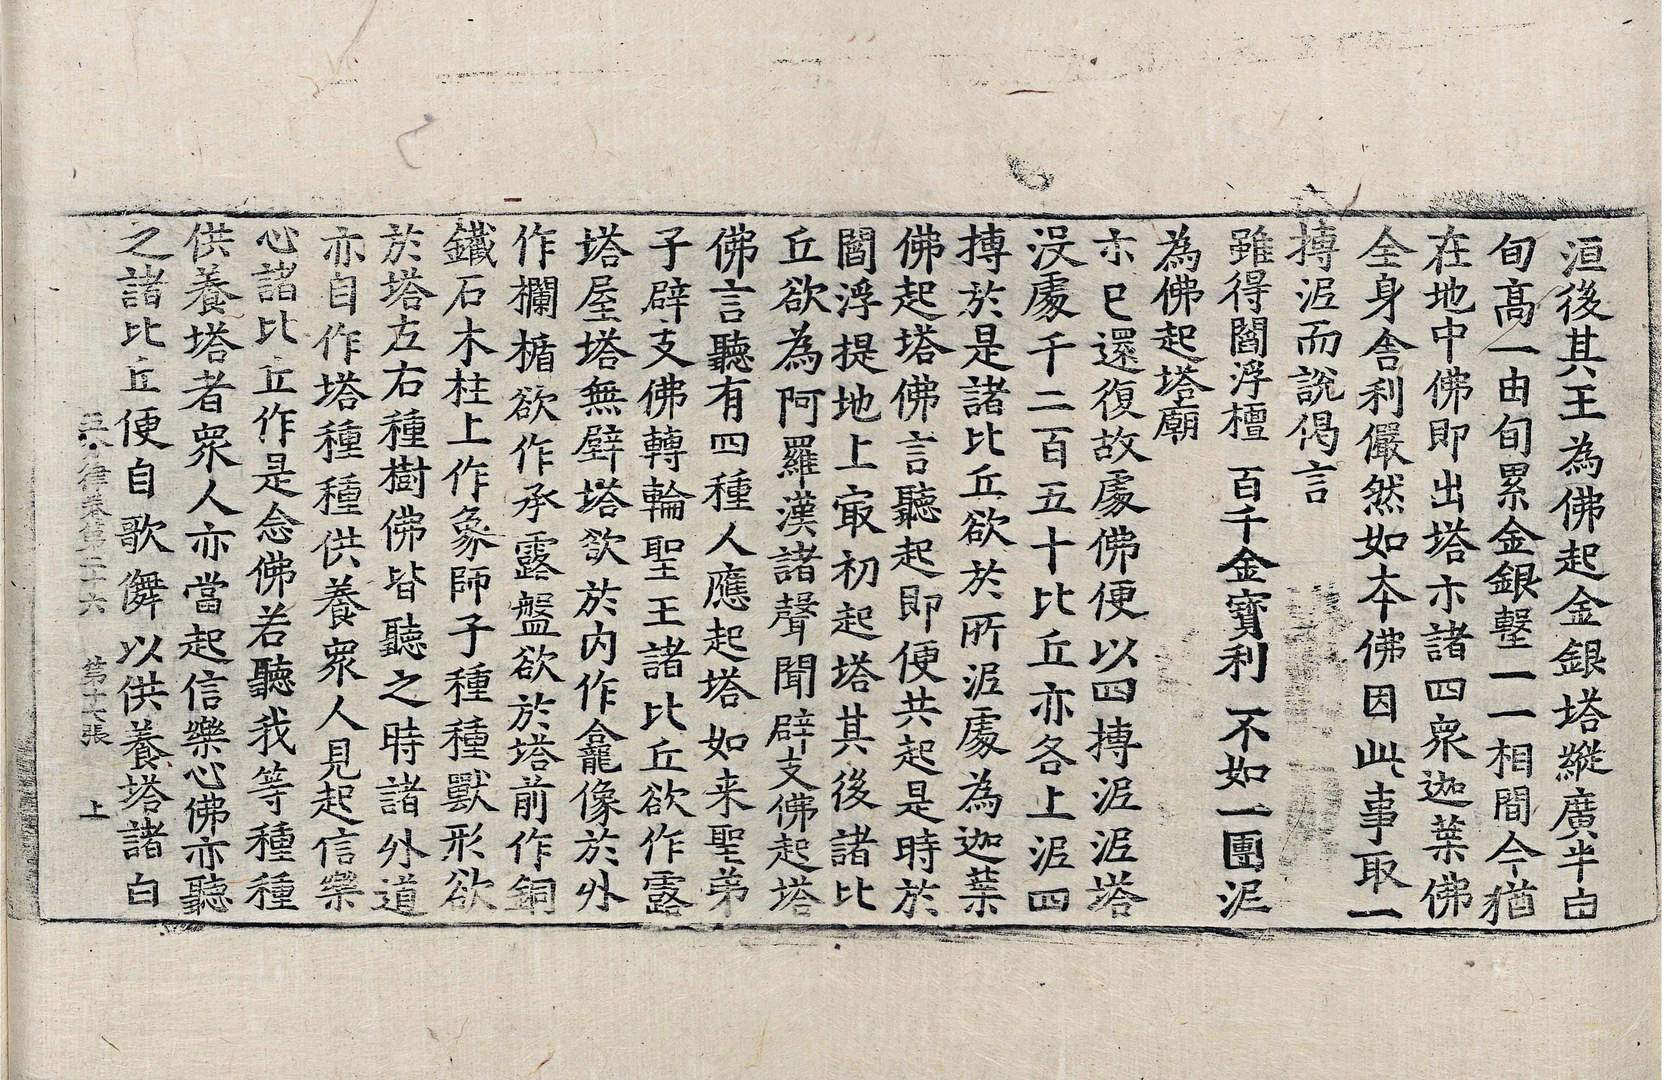 洹後其王為佛起金銀塔縱廣半由
旬高一由旬累金銀墼一一相間今猶
在地中佛即出塔示諸四衆迦葉佛
全身舍利儼然如本佛因此事取一
摶泥而說偈言
雖得閻浮檀 百千金寶利 不如一團泥
為佛起塔廟
示已還復故處佛便以四摶泥泥塔
沒處千二百五十比丘亦各上泥四
摶於是諸比丘欲於所泥處為迦葉
佛起塔佛言聽起即便共起是時於
閻浮提地上冣初起塔其後諸比
丘欲為阿羅漢諸聲聞辟支佛起塔
佛言聽有四種人應起塔如来聖弟
子辟支佛轉輪聖王諸比丘欲作露
塔屋塔無壁塔欲於內作龕像於外
作欄楯欲作承露盤欲於塔前作銅
鐵石木柱上作象師子種種獸形欲
於塔左右種樹佛皆聽之時諸外道
亦自作塔種種供養衆人見起信樂
心諸比丘作是念佛若聽我等種種
供養塔者衆人亦當起信樂心佛亦聽
之諸比丘便自歌儛以供養塔諸白
五分律卷第二十六 第十六張 上